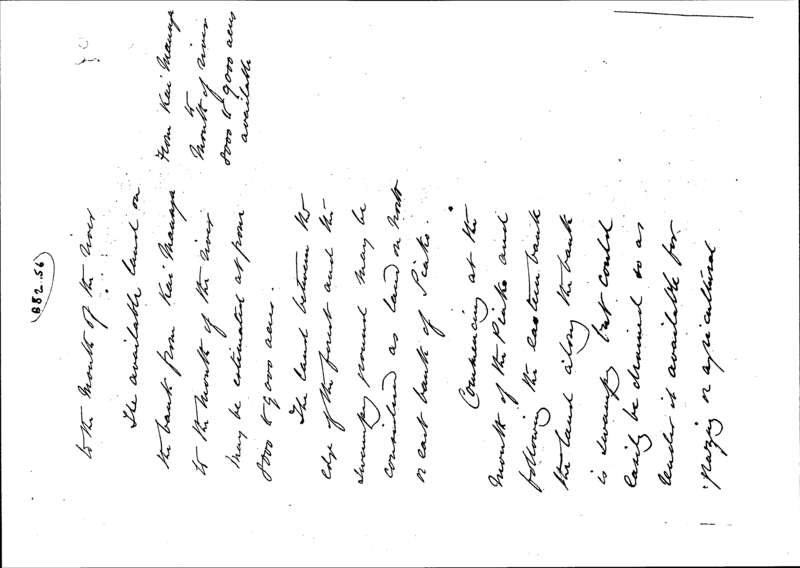 882.56
to the mouth of the river
The available land on
the bank from Kei Manaia
to the mouth of the river
may be estimated at from
8000 to 9000 acres.
From Kei Manaia
to
mouth of river
8000 to 9000 acres
available
The land between the
edge of the forest and the
swampy ground may be
considered as land on north
or east bank of Piako.
Commencing at the
mouth of the Piako and
following the eastern bank
the land along the bank
is swampy but could
easily be drained so as
render it available for
grazing or agricultural